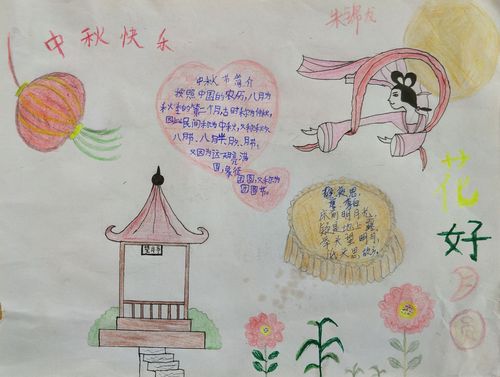 中秋快乐
中秋节简介
按照中国的农历,八月为
秋季的第二个月,古时称为仲秋,
因此民间称为中秋,又称秋夕,
八月节、八月半、月夕、月节,
又因为这一天月亮满
圆,象征
团圆,又称为
团圆节。
静夜思
李白
床前明月光,
疑是地上霜。
举头望明月,
低头思故乡。
花
好
月
圆